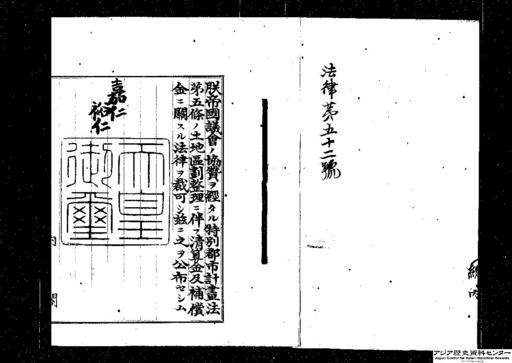 法律第五十二號
朕帝國議會ノ協贊ヲ經タル特別都市計畫法
第五條ノ土地區劃整理ニ伴フ清算金及補償
金ニ關スル法律ヲ裁可シ玆ニ之ヲ公布セシム
嘉仁
裕仁
天皇
御璽
內閣
アジア歴史資料センター
Japan Center for Asian Historical Records